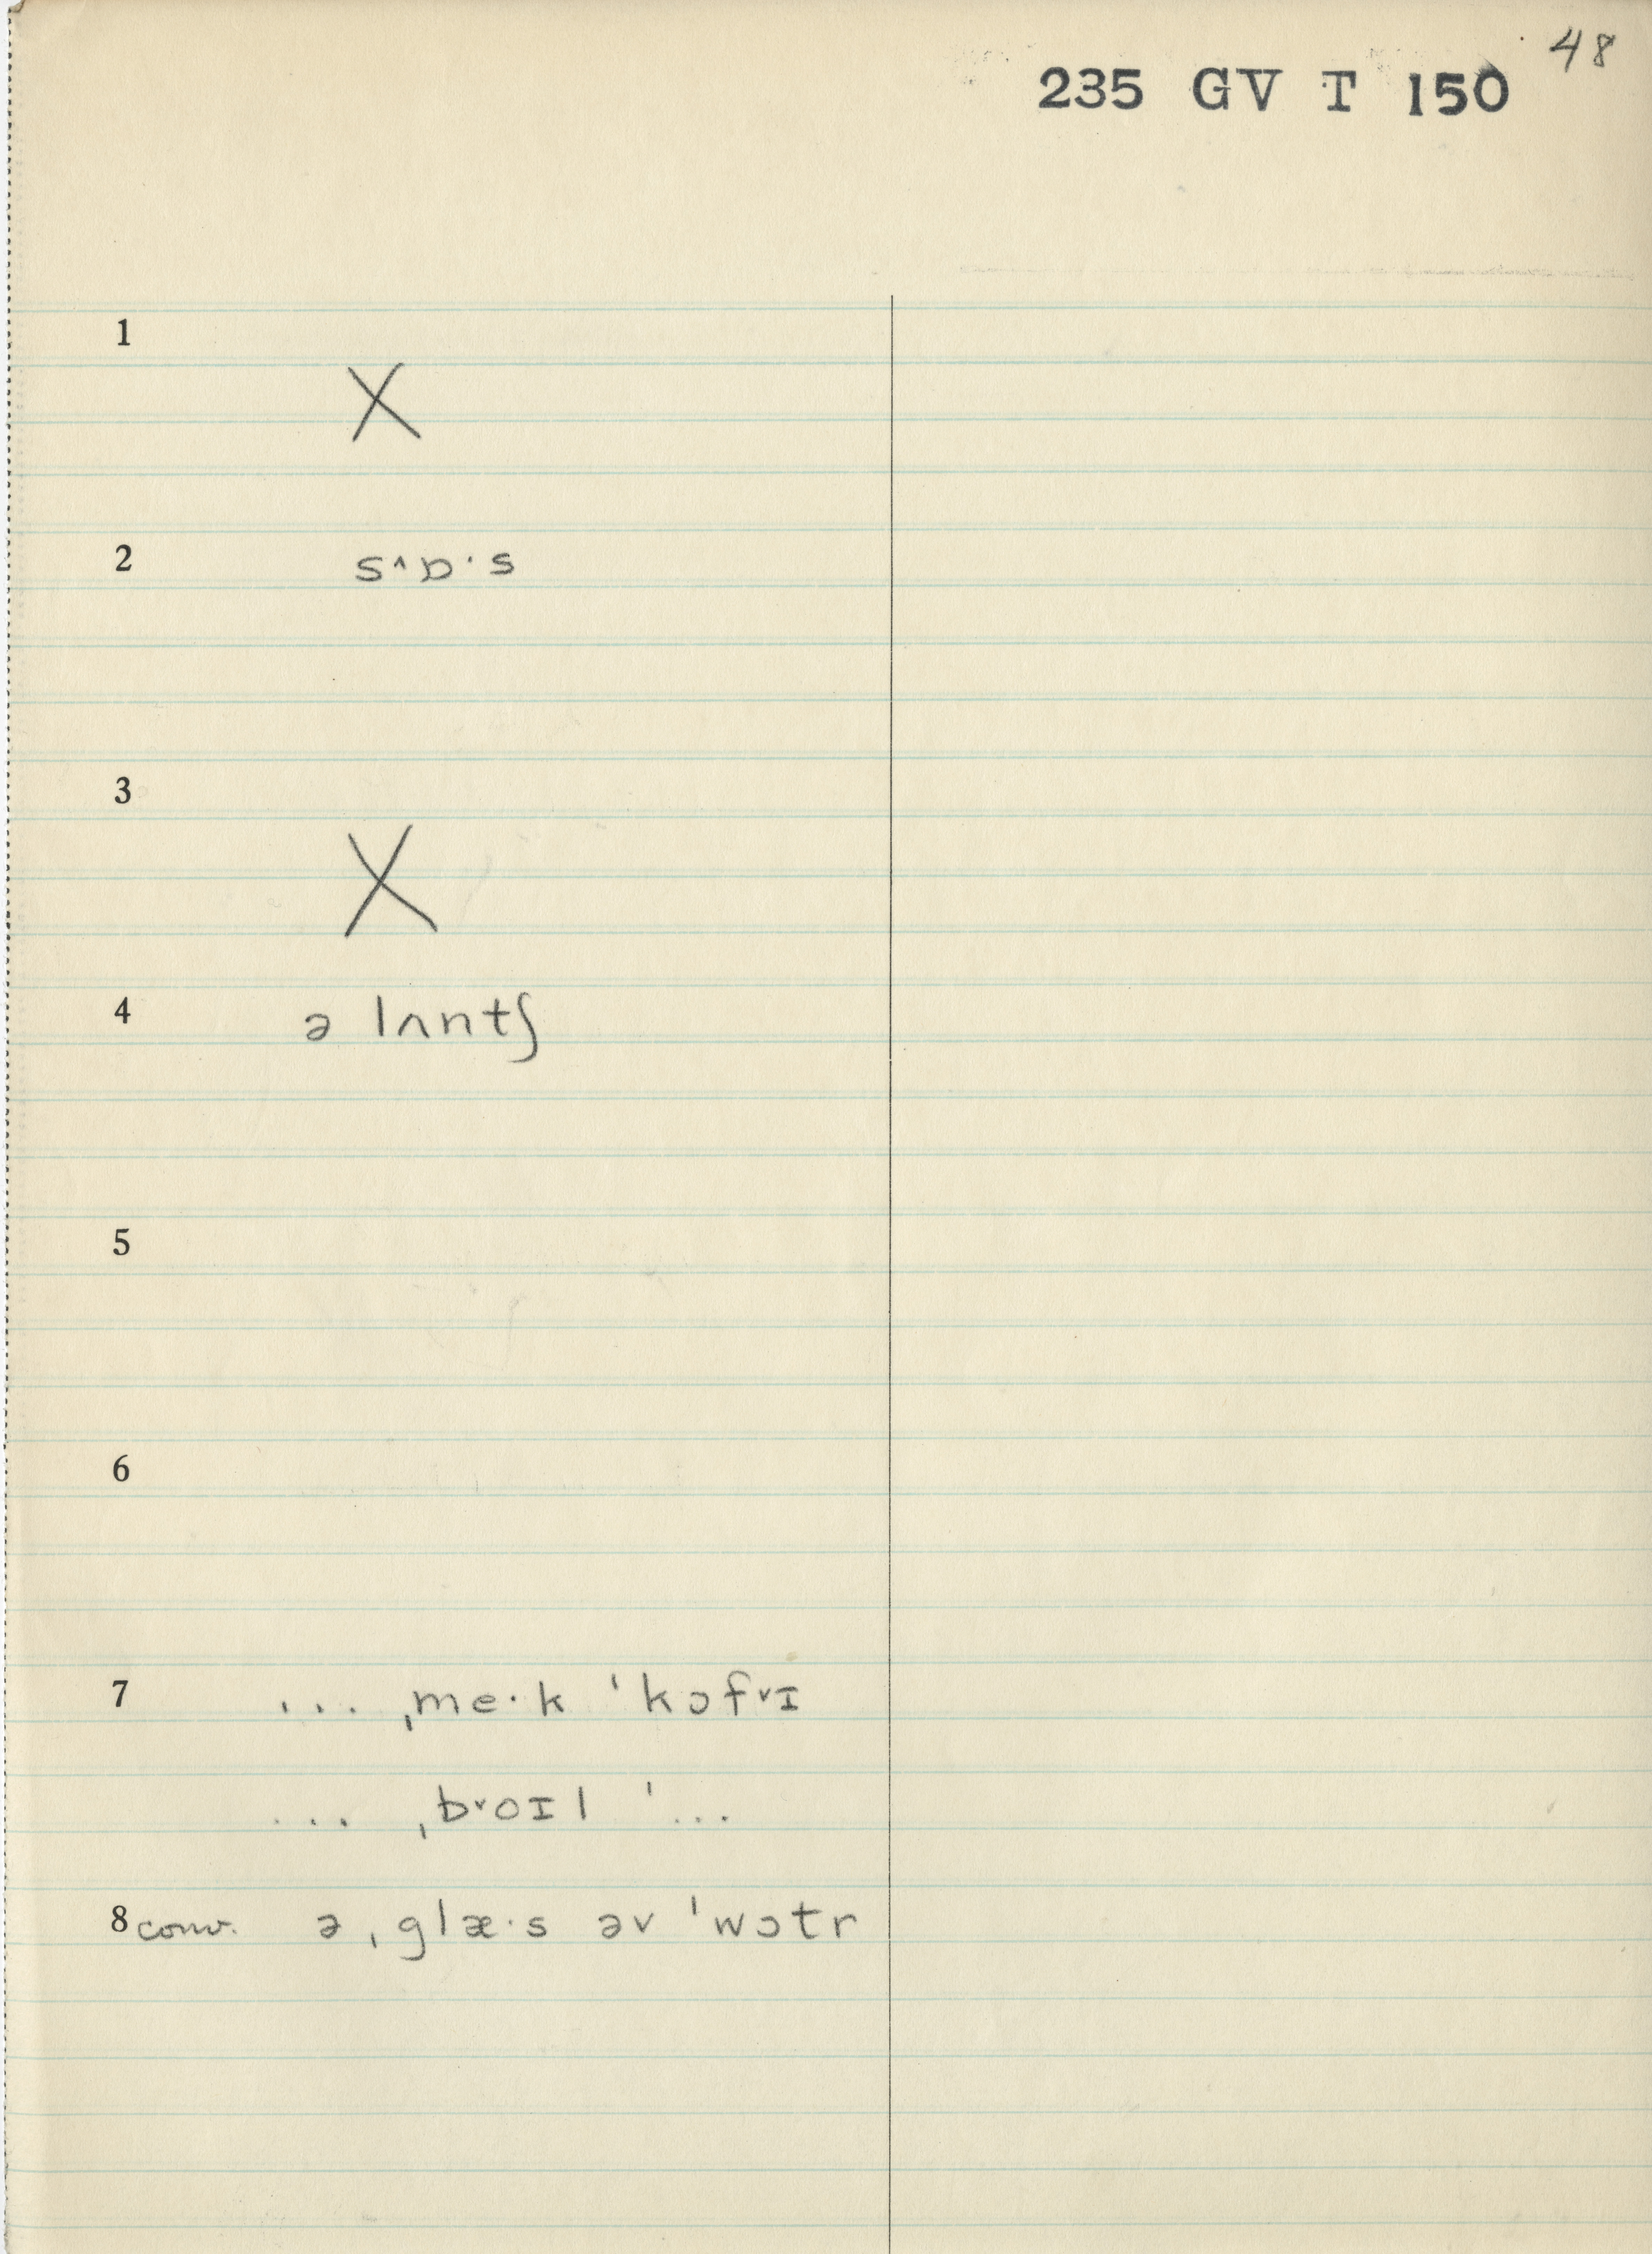 48
235 GV T 150
1
X
2 s˄ɒ·s
3
X
4 ə lʌntʃ
5
6
7 ... ˌme·k ˈkɔf˅ɪ
... ˌb˅oɪl ˈ...
8 conv. ə ˌglæ·s əv ˈwɔtr